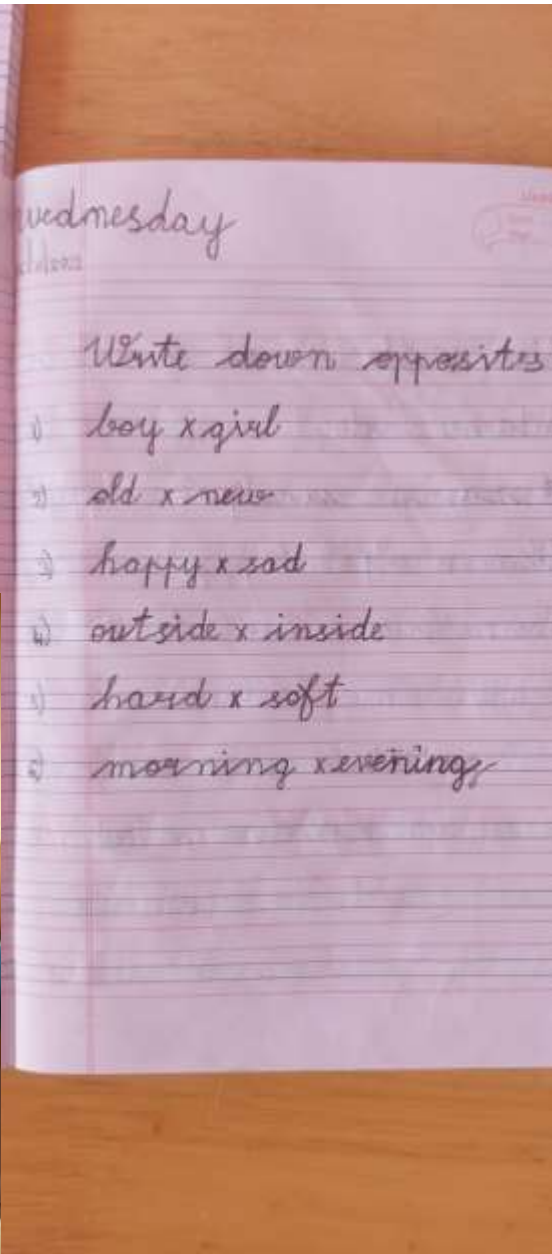 wednesday
Write down opposites
1) boy x girl
2) old x new
3) happy x sad
4) outside x inside
5) hard x soft
6) morning x evening